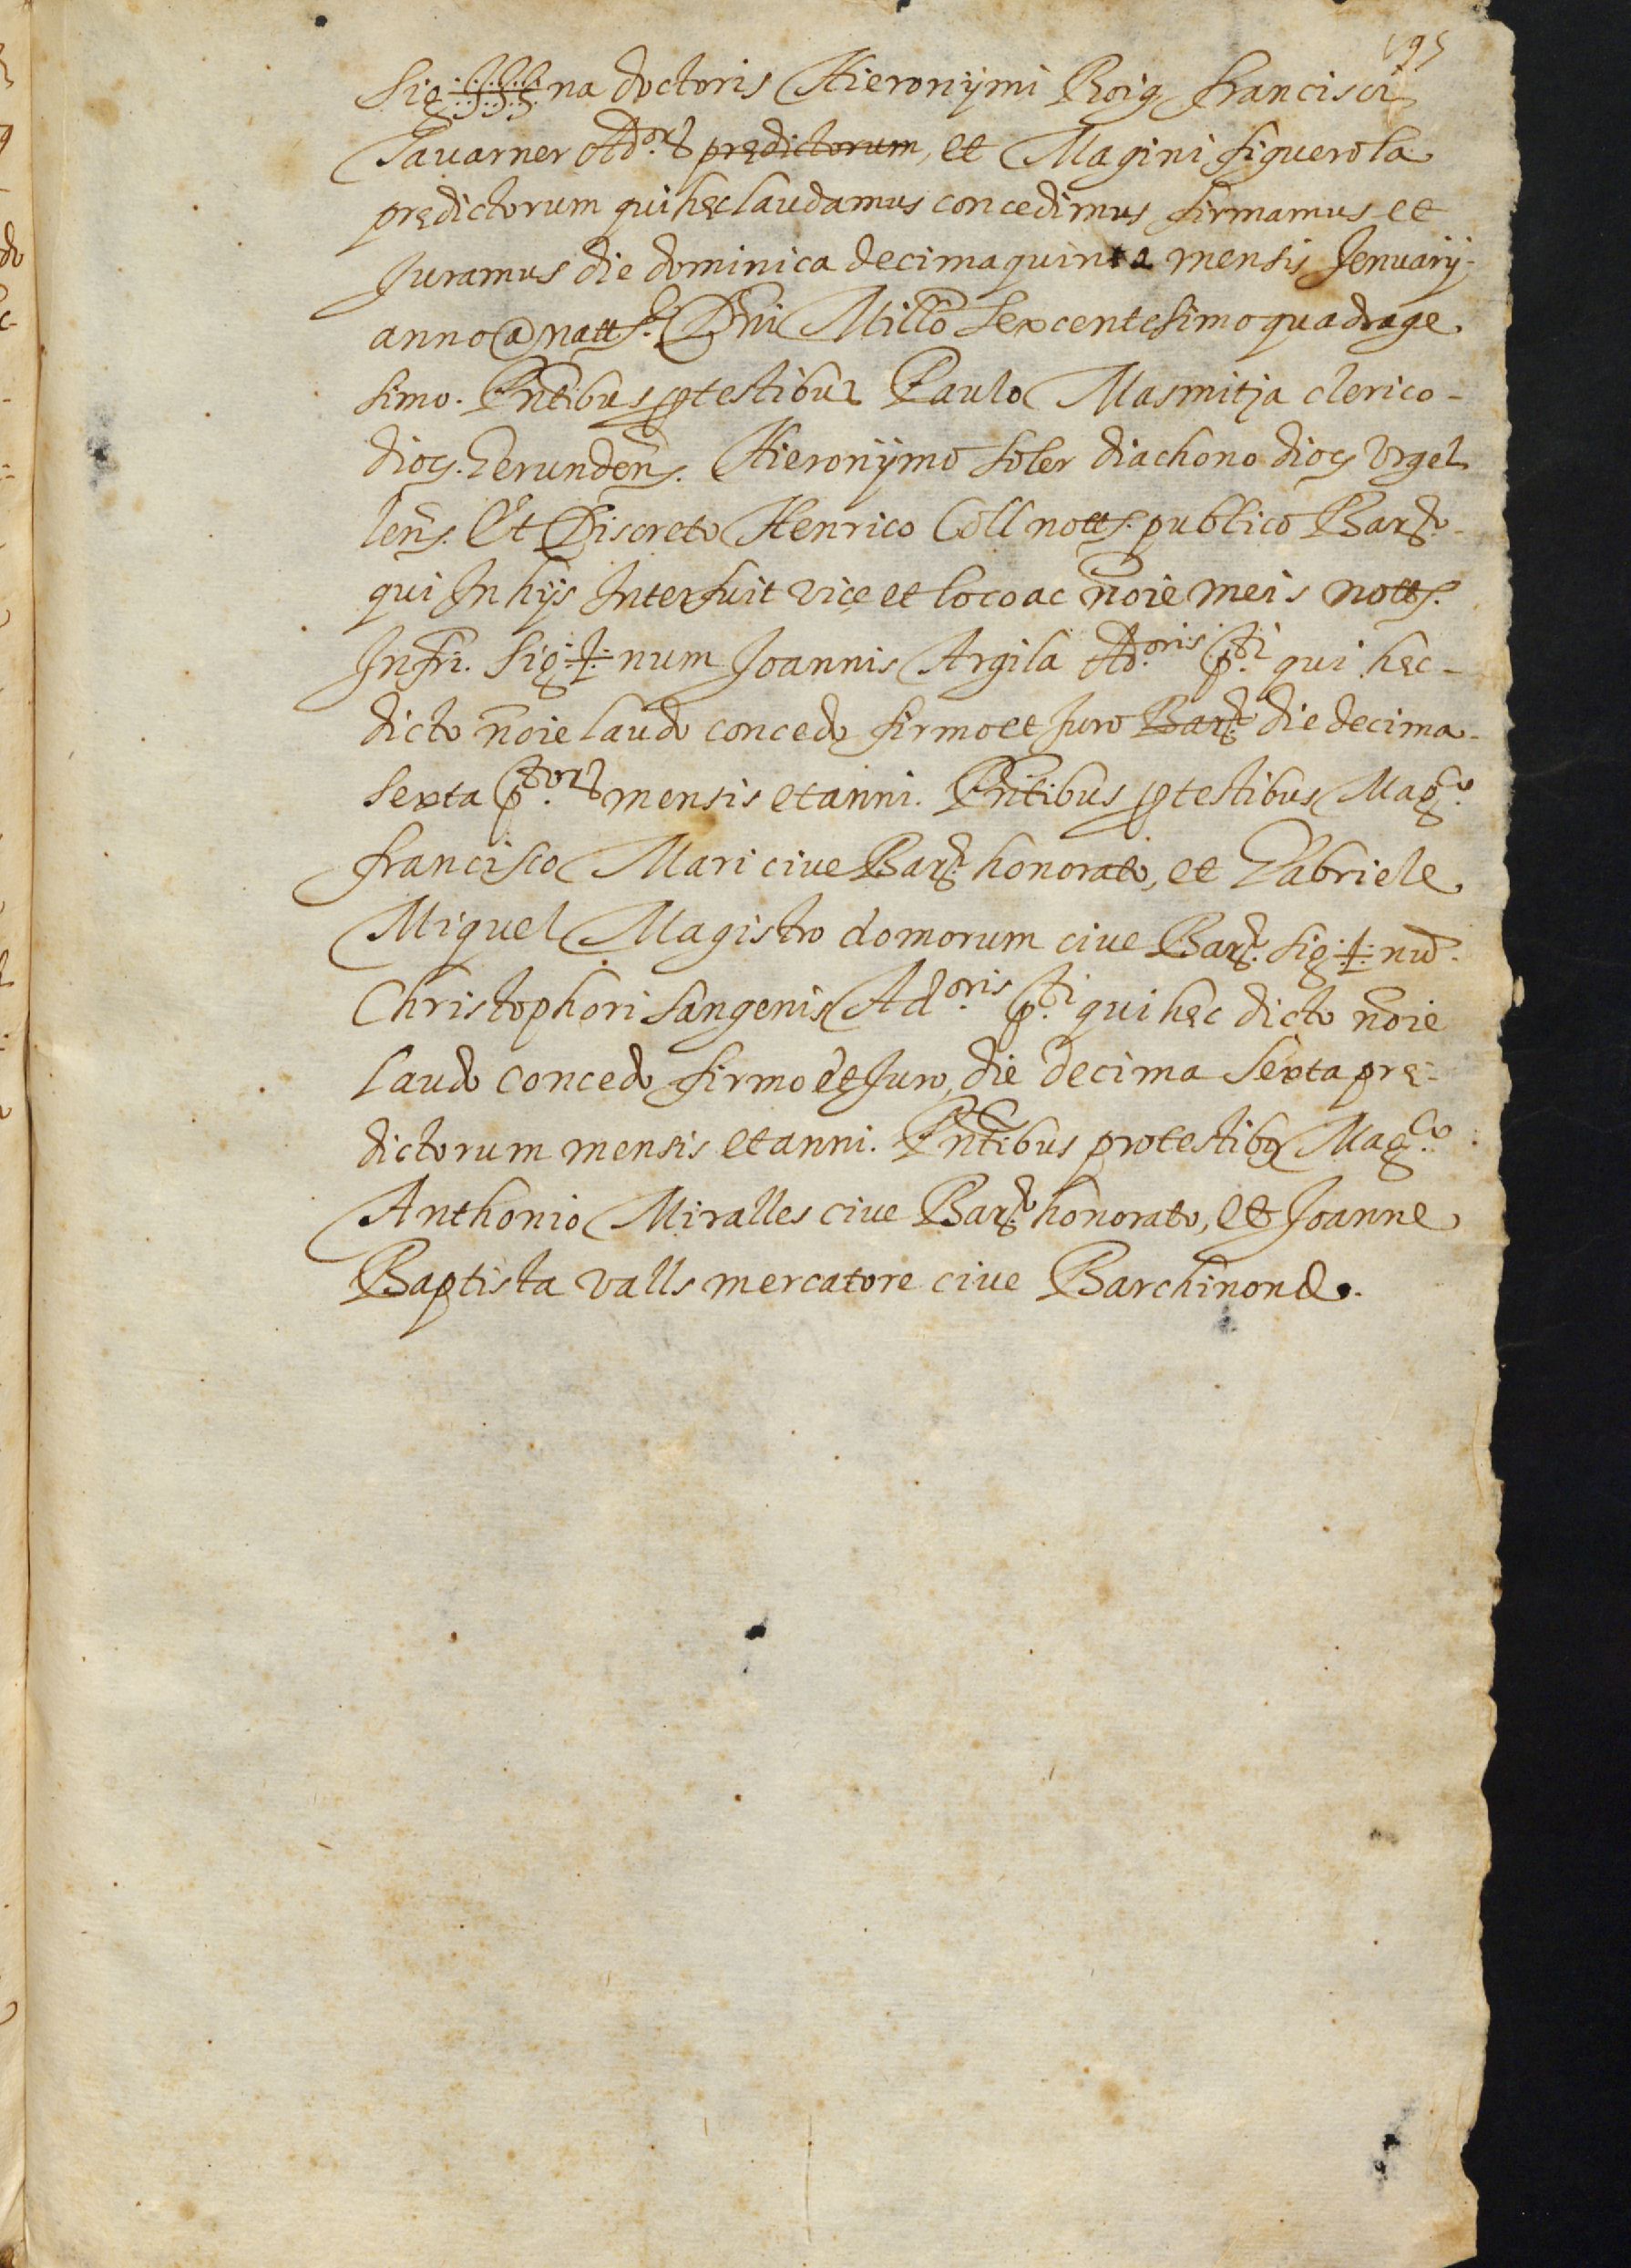 195
Sig ‡‡‡ na doctoris Hieronÿmi Roig francisci
Tauarner Ad.orũ prędictorum, et Magini figuerola
prędictorum qui hęc laudamus concedimus firmamus et
Juramus die dominica decima quinta mensis Jenuarÿ
anno a nattẽ. Dñi Millõ sexcentesimo quadrage
simo. Pñtibus p testibus Paulo Masmitja clerico-
diocs. Gerundeñs. Hieronÿmo soler diachono diocs Vrgel
leñs. Et Discreto Henrico Coll notts. publico Barẽ.
qui In hÿs Interfuit vicę et loco ac nõie meis notts.
Infri. Sig ‡ num Joannis Argila Ad.oris p.ti qui hęc-
dicto nõie laudo concedo firmo et Juro Barẽ die decima-
sexta p.torũ mensis et anni. Pñtibus p testibus Mag.co
francisco Mari ciue Barẽ. honorato, et Gabriele
Miquel Magistro domorum ciue Barẽ. Sig ‡ nũ.
Christophori sangenis Ad.oris p.ti qui hęc dicto nõie
laudo concedo firmo et Juro, die decima sexta prę-
dictorum mensis et anni. Pñtibus pro testibus Mag.co
Anthonio Miralles ciue Barẽ. honorato, et Joanne
Baptista valls mercatore ciue Barchinonę.